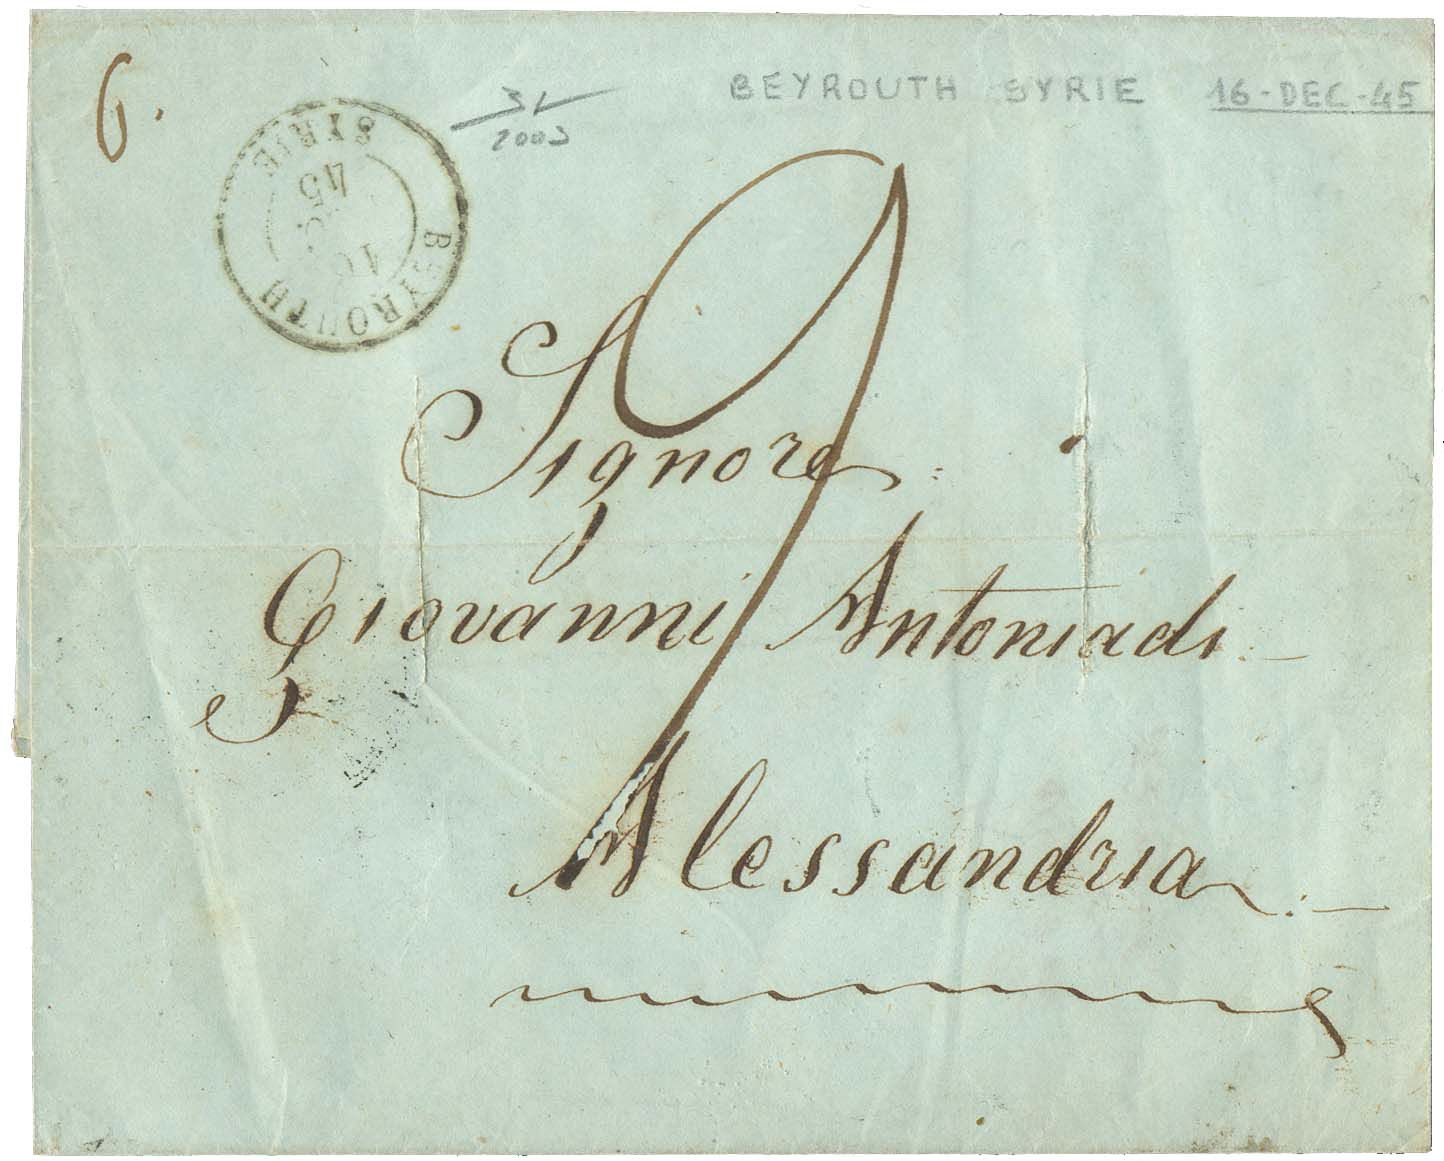 6.
3L
2003
BEYROUTH SYRIE 16-DEC-45
BEYROUTH
SYRIE
45
9
Signore
Giovanni Antoniadi
Alessandria